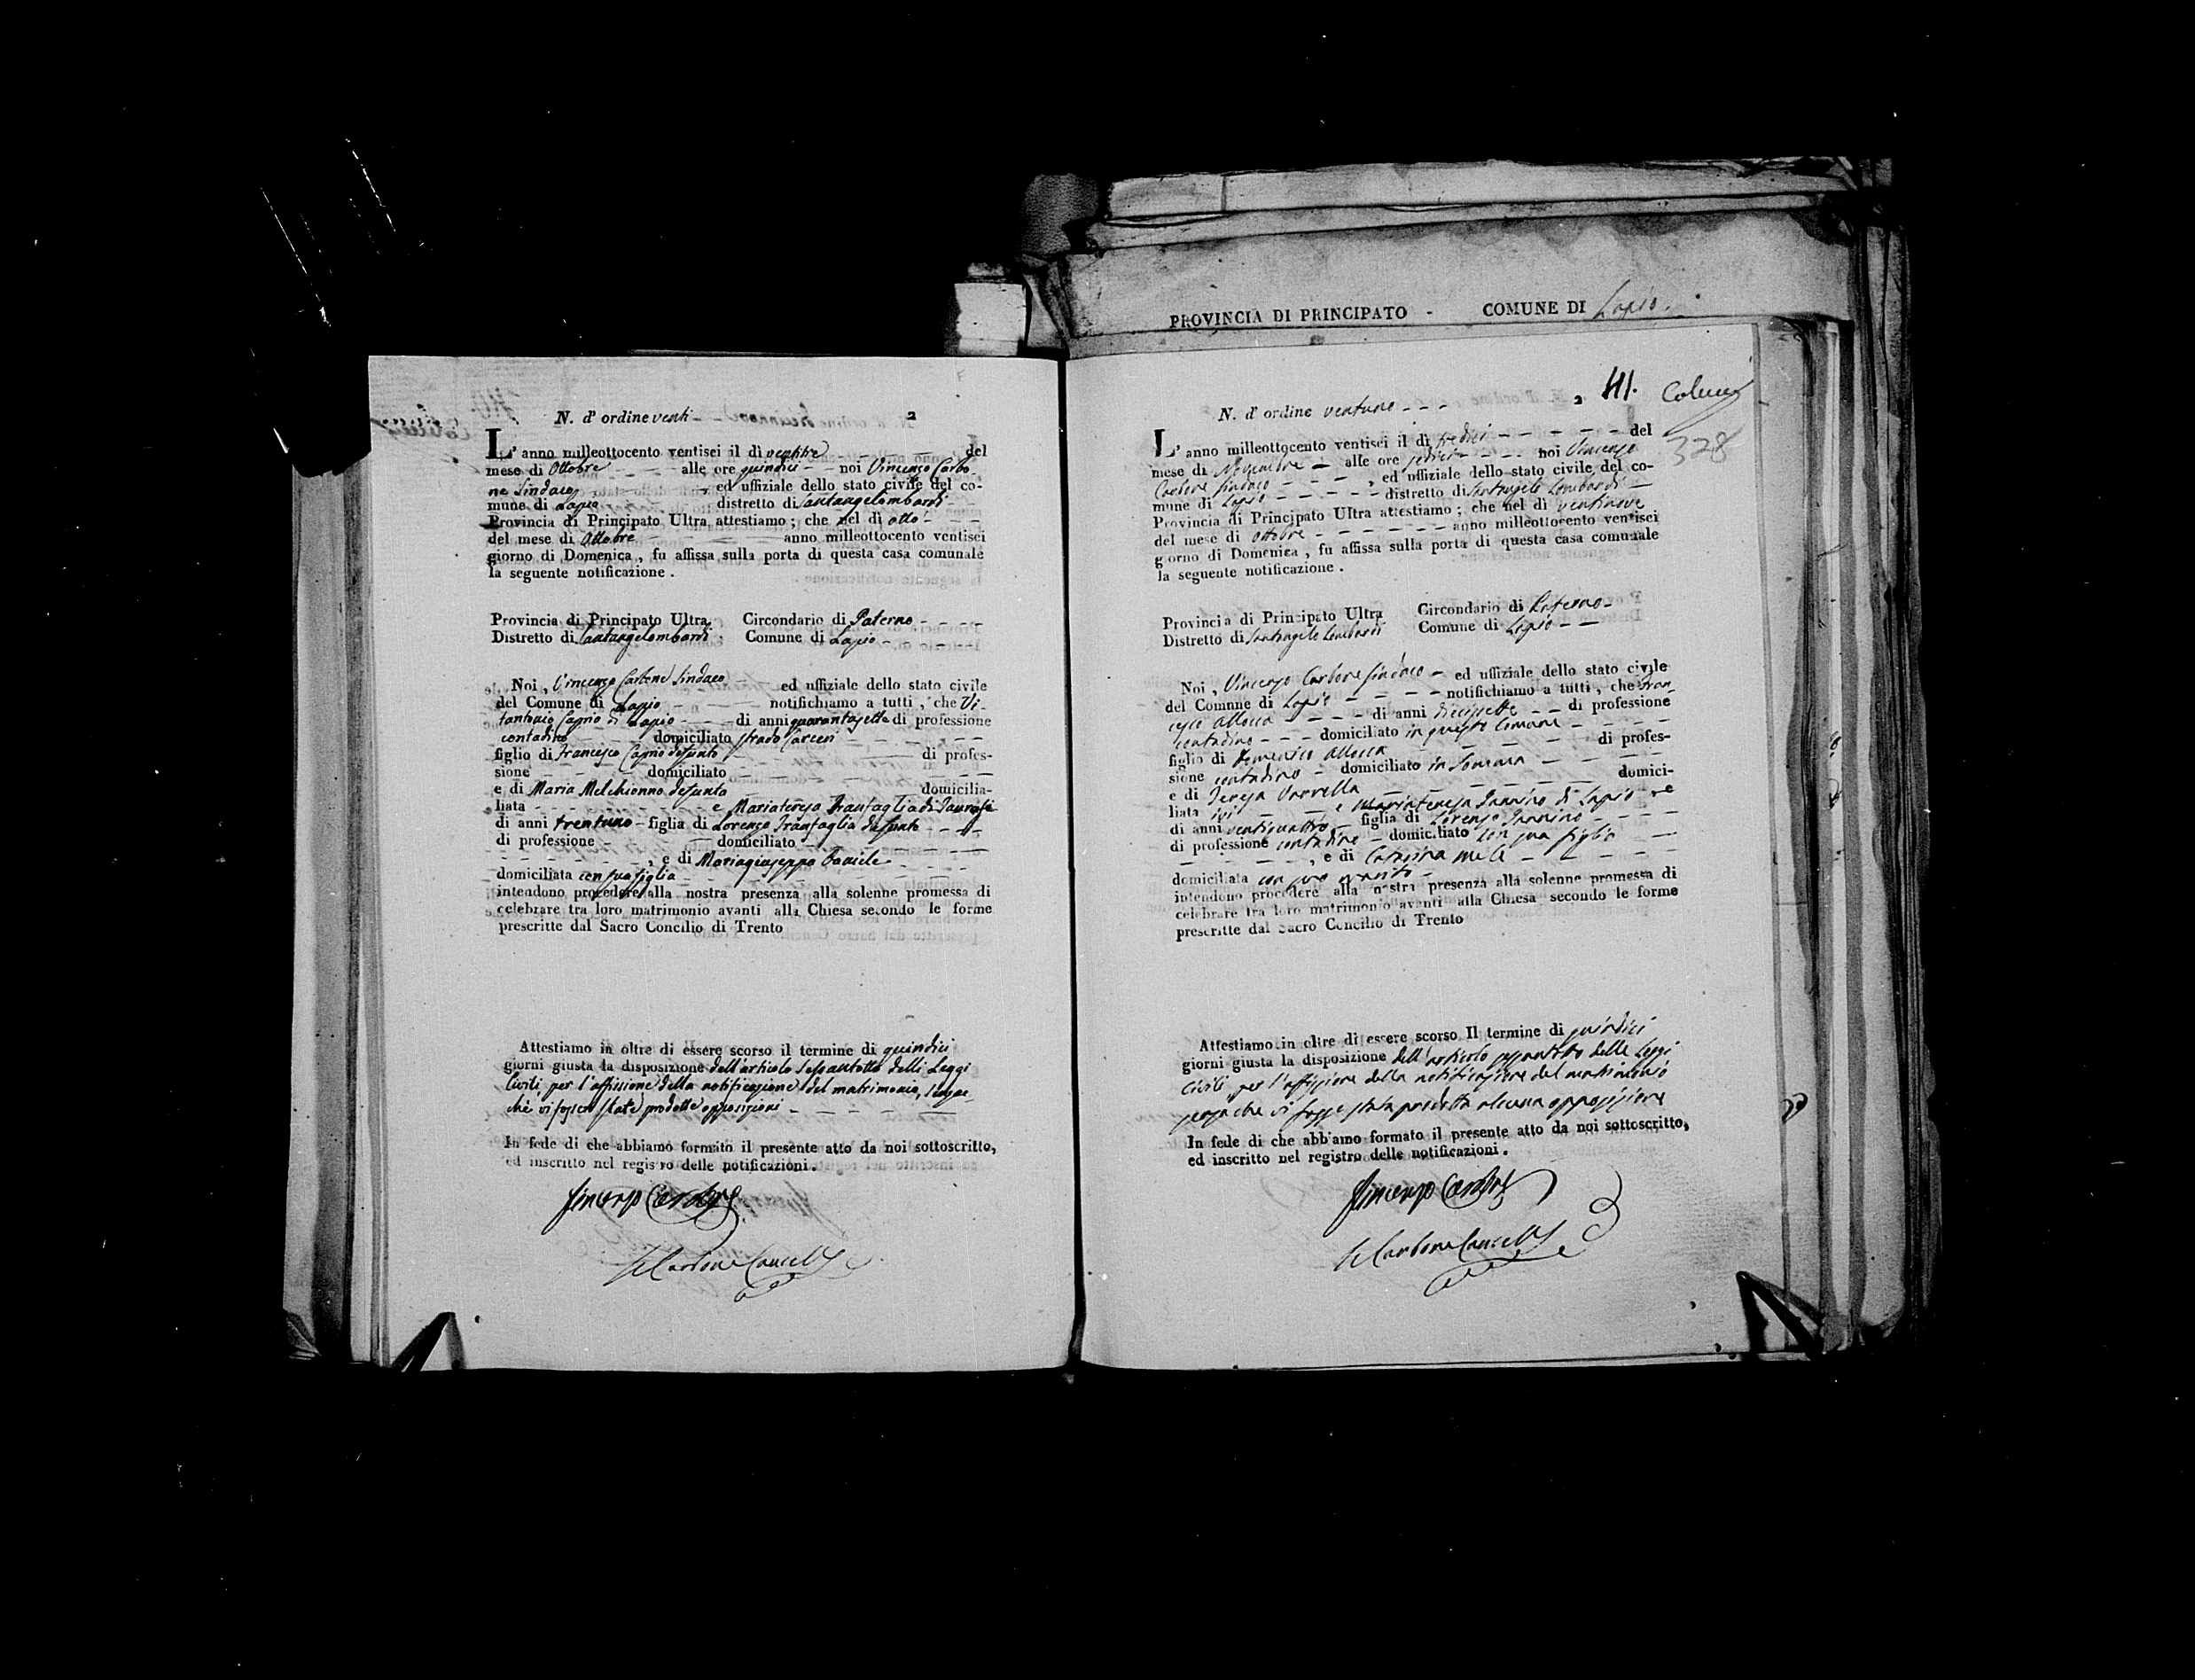 PROVINCIA DI PRINCIPATO - COMUNE DI Lapio.
N. d' ordine venti 2
L' anno milleottocento ventisei il dì ventitre del
mese di Ottobre alle ore quindici noi Vincenzo Carbo-
ne Sindaco ed uffiziale dello stato civile del co-
mune di Lapio distretto di Santangelombardi
Provincia di Principato Ultra attestiamo ; che nel dì otto
del mese di Ottobre anno milleottocento ventisei
giorno di Domenica , fu affissa sulla porta di questa casa comunale
la seguente notificazione .
Provincia di Principato Ultra Circondario di Paterno
Distretto di Santangelombardi Comune di Lapio
Noi , Vincenzo Carbone Sindaco ed uffiziale dello stato civile
del Comune di Lapio notifichiamo a tutti , che Vi-
tantonio Caprio di Lapio di anni quarantasette di professione
contadino domiciliato strada Carceri
figlio di Francesco Caprio defunto di profes-
sione domiciliato
e di Maria Melchionno defunta domicilia-
liata e Mariateresa Tranfaglia di Taurasi
di anni trentuno figlia di Lorenzo Tranfaglia defunto
di professione domiciliato
, e di Mariagiuseppa Daniele
domiciliata con sua figlia
intendono procedere alla nostra presenza alla solenne promessa di
celebrare tra loro matrimonio avanti alla Chiesa secondo le forme
prescritte dal Sacro Concilio di Trento
Attestiamo in oltre di essere scorso il termine di quindici
giorni giusta la disposizione dell'articolo sessantotto delli Leggi
Civili per l'affissione della notificazione del matrimonio, senza
che vi fossero state prodotte opposizioni
In fede di che abbiamo formato il presente atto da noi sottoscritto,
ed inscritto nel registro delle notificazioni .
Vincenzo Carbone
Carbone Cancell
41. Colucci
328
N. d' ordine ventuno 2
L' anno milleottocento ventisei il dì tredici del
mese di Novembre alle ore sedici noi Vincenzo
Carbone Sindaco , ed uffiziale dello stato civile del co-
mune di Lapio distretto di Santangelo Lombardi
Provincia di Principato Ultra attestiamo ; che nel dì ventinove
del mese di Ottobre anno milleottocento ventisei
giorno di Domenica , fu affissa sulla porta di questa casa comunale
la seguente notificazione .
Provincia di Principato Ultra Circondario di Paterno
Distretto di Santangelo Lombardi Comune di Lapio
Noi , Vincenzo Carbone Sindaco ed uffiziale dello stato civile
del Comune di Lapio notifichiamo a tutti , che Fran-
cesco Allocca di anni diecisette di professione
contadino domiciliato in questo Comune
figlio di Domenico Allocca di profes-
sione contadino domiciliato in Somma
e di Teresa Varrella domici-
liata ivi e Mariateresa Iannino di Lapio
di anni ventiquattro figlia di Lorenzo Iannino
di professione contadino domiciliato con sua figlia
, e di Catarina Mele
domiciliata con suo marito
intendono procedere alla nostra presenza alla solenne promessa di
celebrare tra loro matrimonio avanti alla Chiesa secondo le forme
prescritte dal Sacro Concilio di Trento
Attestiamo in oltre di essere scorso Il termine di quindici
giorni giusta la disposizione dell'articolo sessantotto delle Leggi
Civili per l'affissione della notificazione del matrimonio
senza che vi fosse stata prodotta alcuna opposizione
In fede di che abbiamo formato il presente atto da noi sottoscritto,
ed inscritto nel registro delle notificazioni .
Vincenzo Carbone
Carbone Cancell